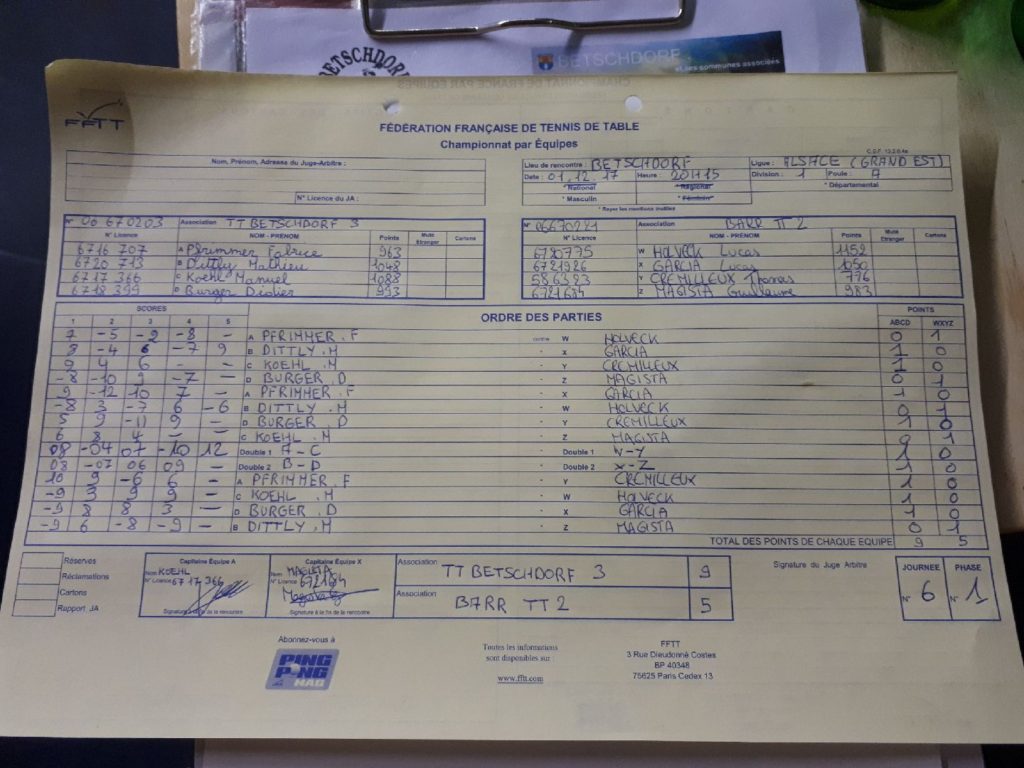 BETSCHDORF
BETSCHDORF
et les communes associées
FFTT
FÉDÉRATION FRANÇAISE DE TENNIS DE TABLE
Championnat par Équipes
Nom, Prénom, Adresse du Juge-Arbitre :
N° Licence du JA :
Lieu de rencontre : BETSCHDORF Ligue : ALSACE (GRAND EST)
Date : 01.12.17 Heure : 20H15 Division : 1 Poule : A
* National * Régional * Départemental
* Masculin * Féminin
* Rayer les mentions inutiles
N° 06 670203 Association TT BETSCHDORF 3
N° Licence NOM - PRÉNOM Points Muté Etranger Cartons
6716 707 A Pfrimmer Fabrice 963
6720 713 B Dittly Mathieu 1048
6717 366 C Koehl Manuel 1088
6718 399 D Burger Didier 993
N° 06670281 Association BARR TT 2
N° Licence NOM - PRÉNOM Points Muté Etranger Cartons
6720775 W HOLVECK Lucas 1152
6721926 X GARCIA Lucas 1050
586383 Y CREMILLEUX Thomas
6721684 Z MAGISTA Guillaume 983
SCORES ORDRE DES PARTIES POINTS
1 2 3 4 5 ABCD WXYZ
7 -5 -2 -8 - A PFRIMMER.F contre W HOLVECK 0 1
8 -4 6 -7 9 B DITTLY.M X GARCIA 1 0
9 4 6 - - C KOEHL.M Y CREMILLEUX 1 0
-8 -10 9 -7 - D BURGER.D Z MAGISTA 0 1
9 -12 10 7 - A PFRIMMER.F X GARCIA 1 0
-8 3 -7 6 -6 B DITTLY.M W HOLVECK 0 1
5 9 -11 9 - D BURGER.D Y CREMILLEUX 1 0
6 8 4 - - C KOEHL.M Z MAGISTA 0 1
08 -04 07 -10 12 Double 1 A-C Double 1 W-Y 1 0
08 -07 06 09 - Double 2 B-D Double 2 X-Z 1 0
10 9 -6 6 - A PFRIMMER.F Y CREMILLEUX 1 0
-9 3 9 9 - C KOEHL.M W HOLVECK 1 0
-9 8 8 3 - D BURGER.D X GARCIA 1 0
-9 6 -8 -9 - B DITTLY.M Z MAGISTA 0 1
TOTAL DES POINTS DE CHAQUE EQUIPE 9 5
Réserves
Réclamations
Cartons
Rapport. JA
Capitaine Équipe A
Nom KOEHL
N° Licence 6717366
Signature à la fin de la rencontre
Capitaine Équipe X
Nom MAGISTA
N° Licence 6721684
Signature à la fin de la rencontre
Association TT BETSCHDORF 3 9
Association BARR TT 2 5
Signature du Juge Arbitre
JOURNÉE PHASE
N° 6 N° 1
Abonnez-vous à
PING PONG MAG
Toutes les informations
sont disponibles sur :
www.fftt.com
FFTT
3 Rue Dieudonné Costes
BP 40348
75625 Paris Cedex 13